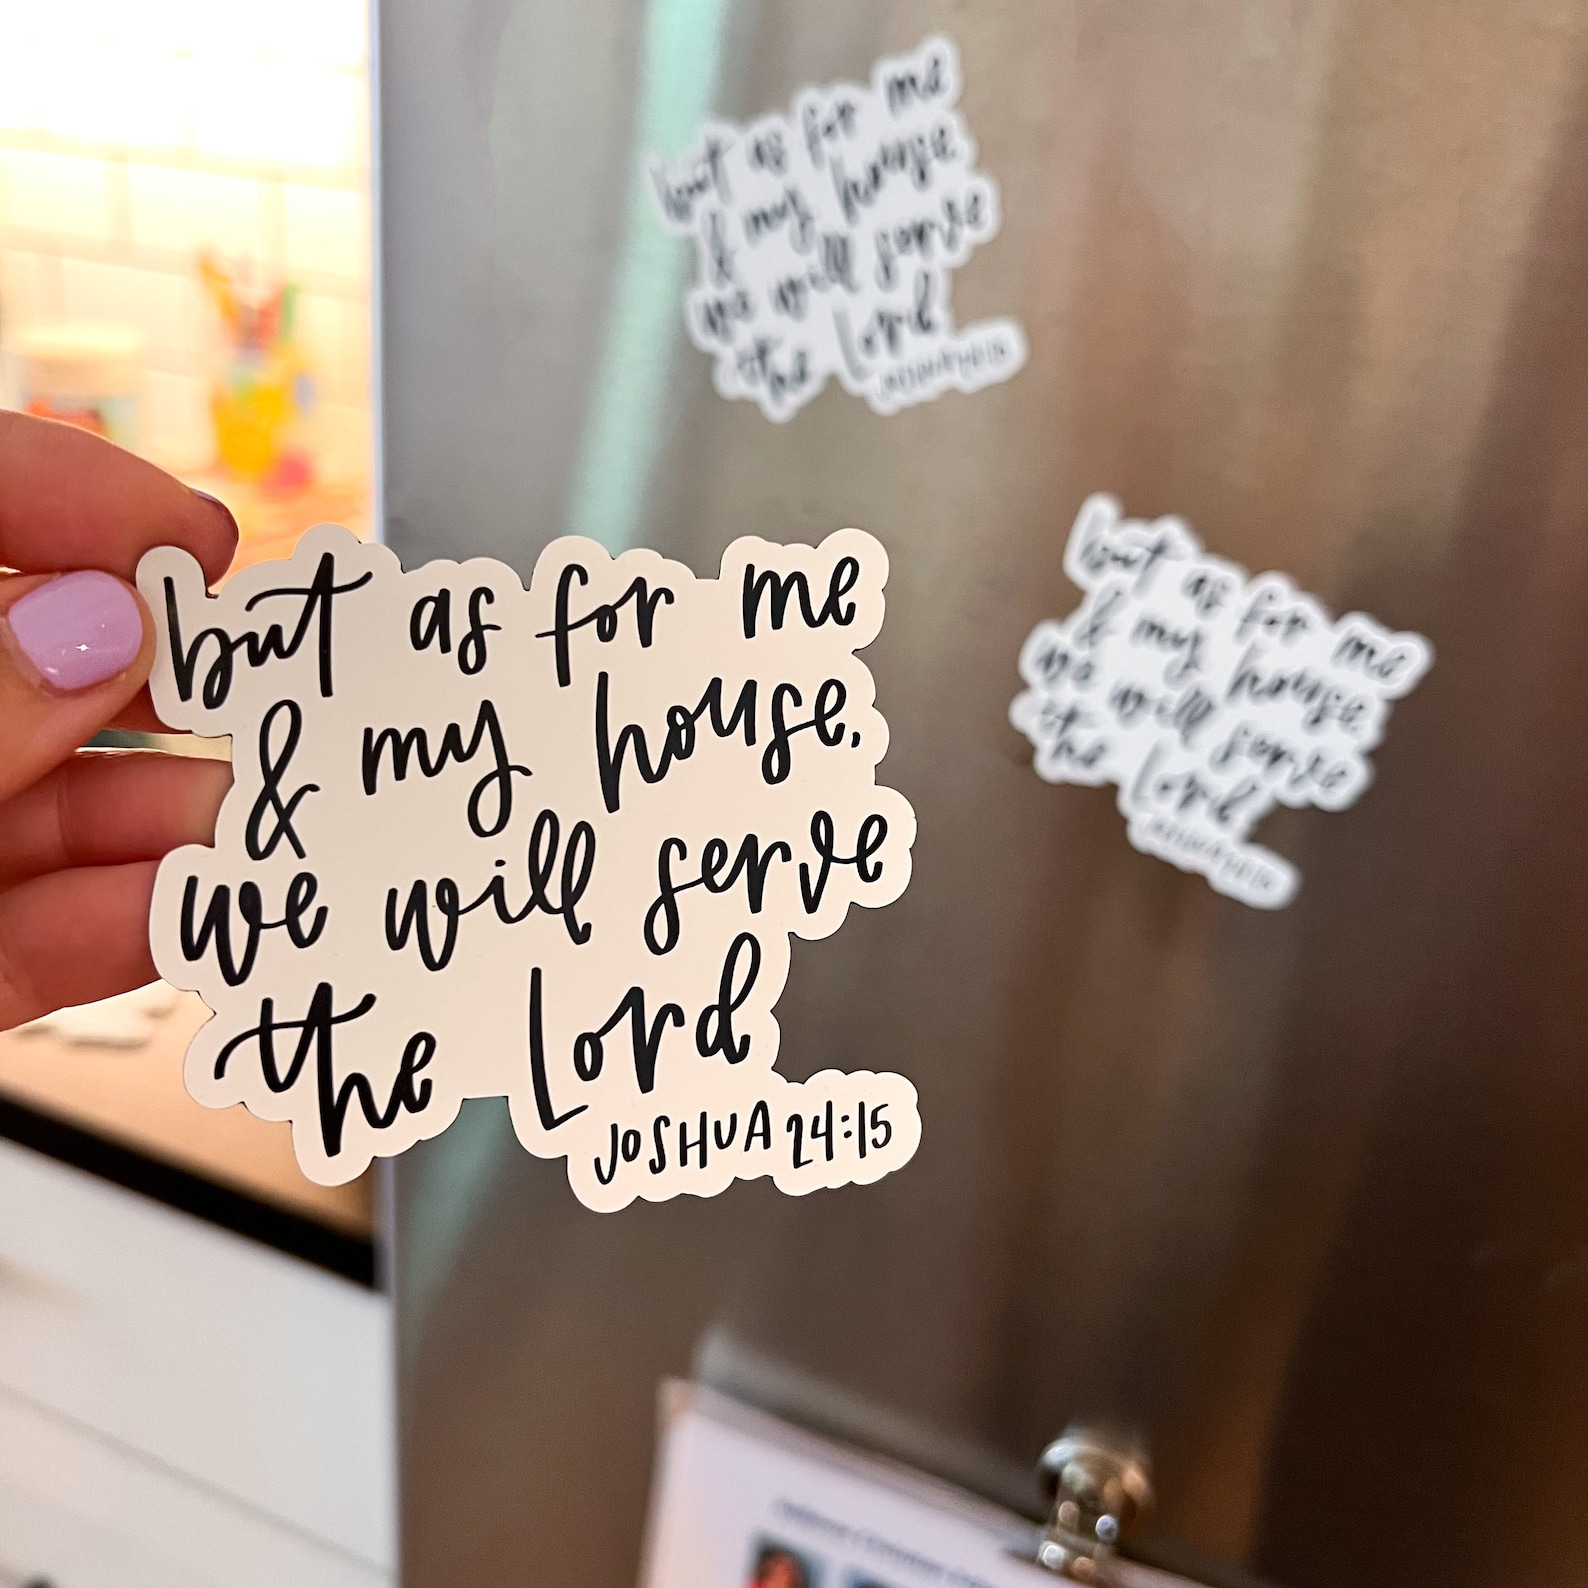 but as for me
& my house,
we will serve
the Lord
JOSHUA 24:15
but as for me
& my house,
we will serve
the Lord
JOSHUA 24:15
but as for me
& my house,
we will serve
the Lord
JOSHUA 24:15